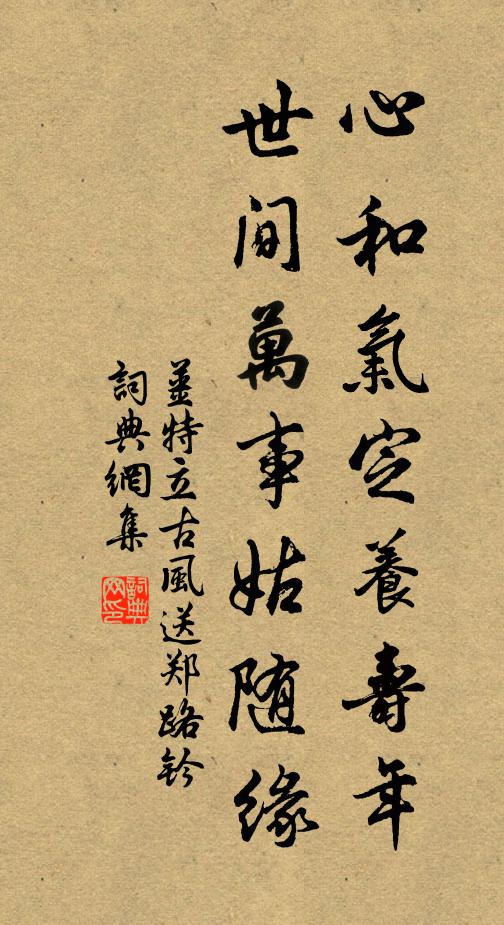 心和氣定養壽年
世间萬事姑随緣
姜特立古風送郑路钤
詞典網集
詞典网印